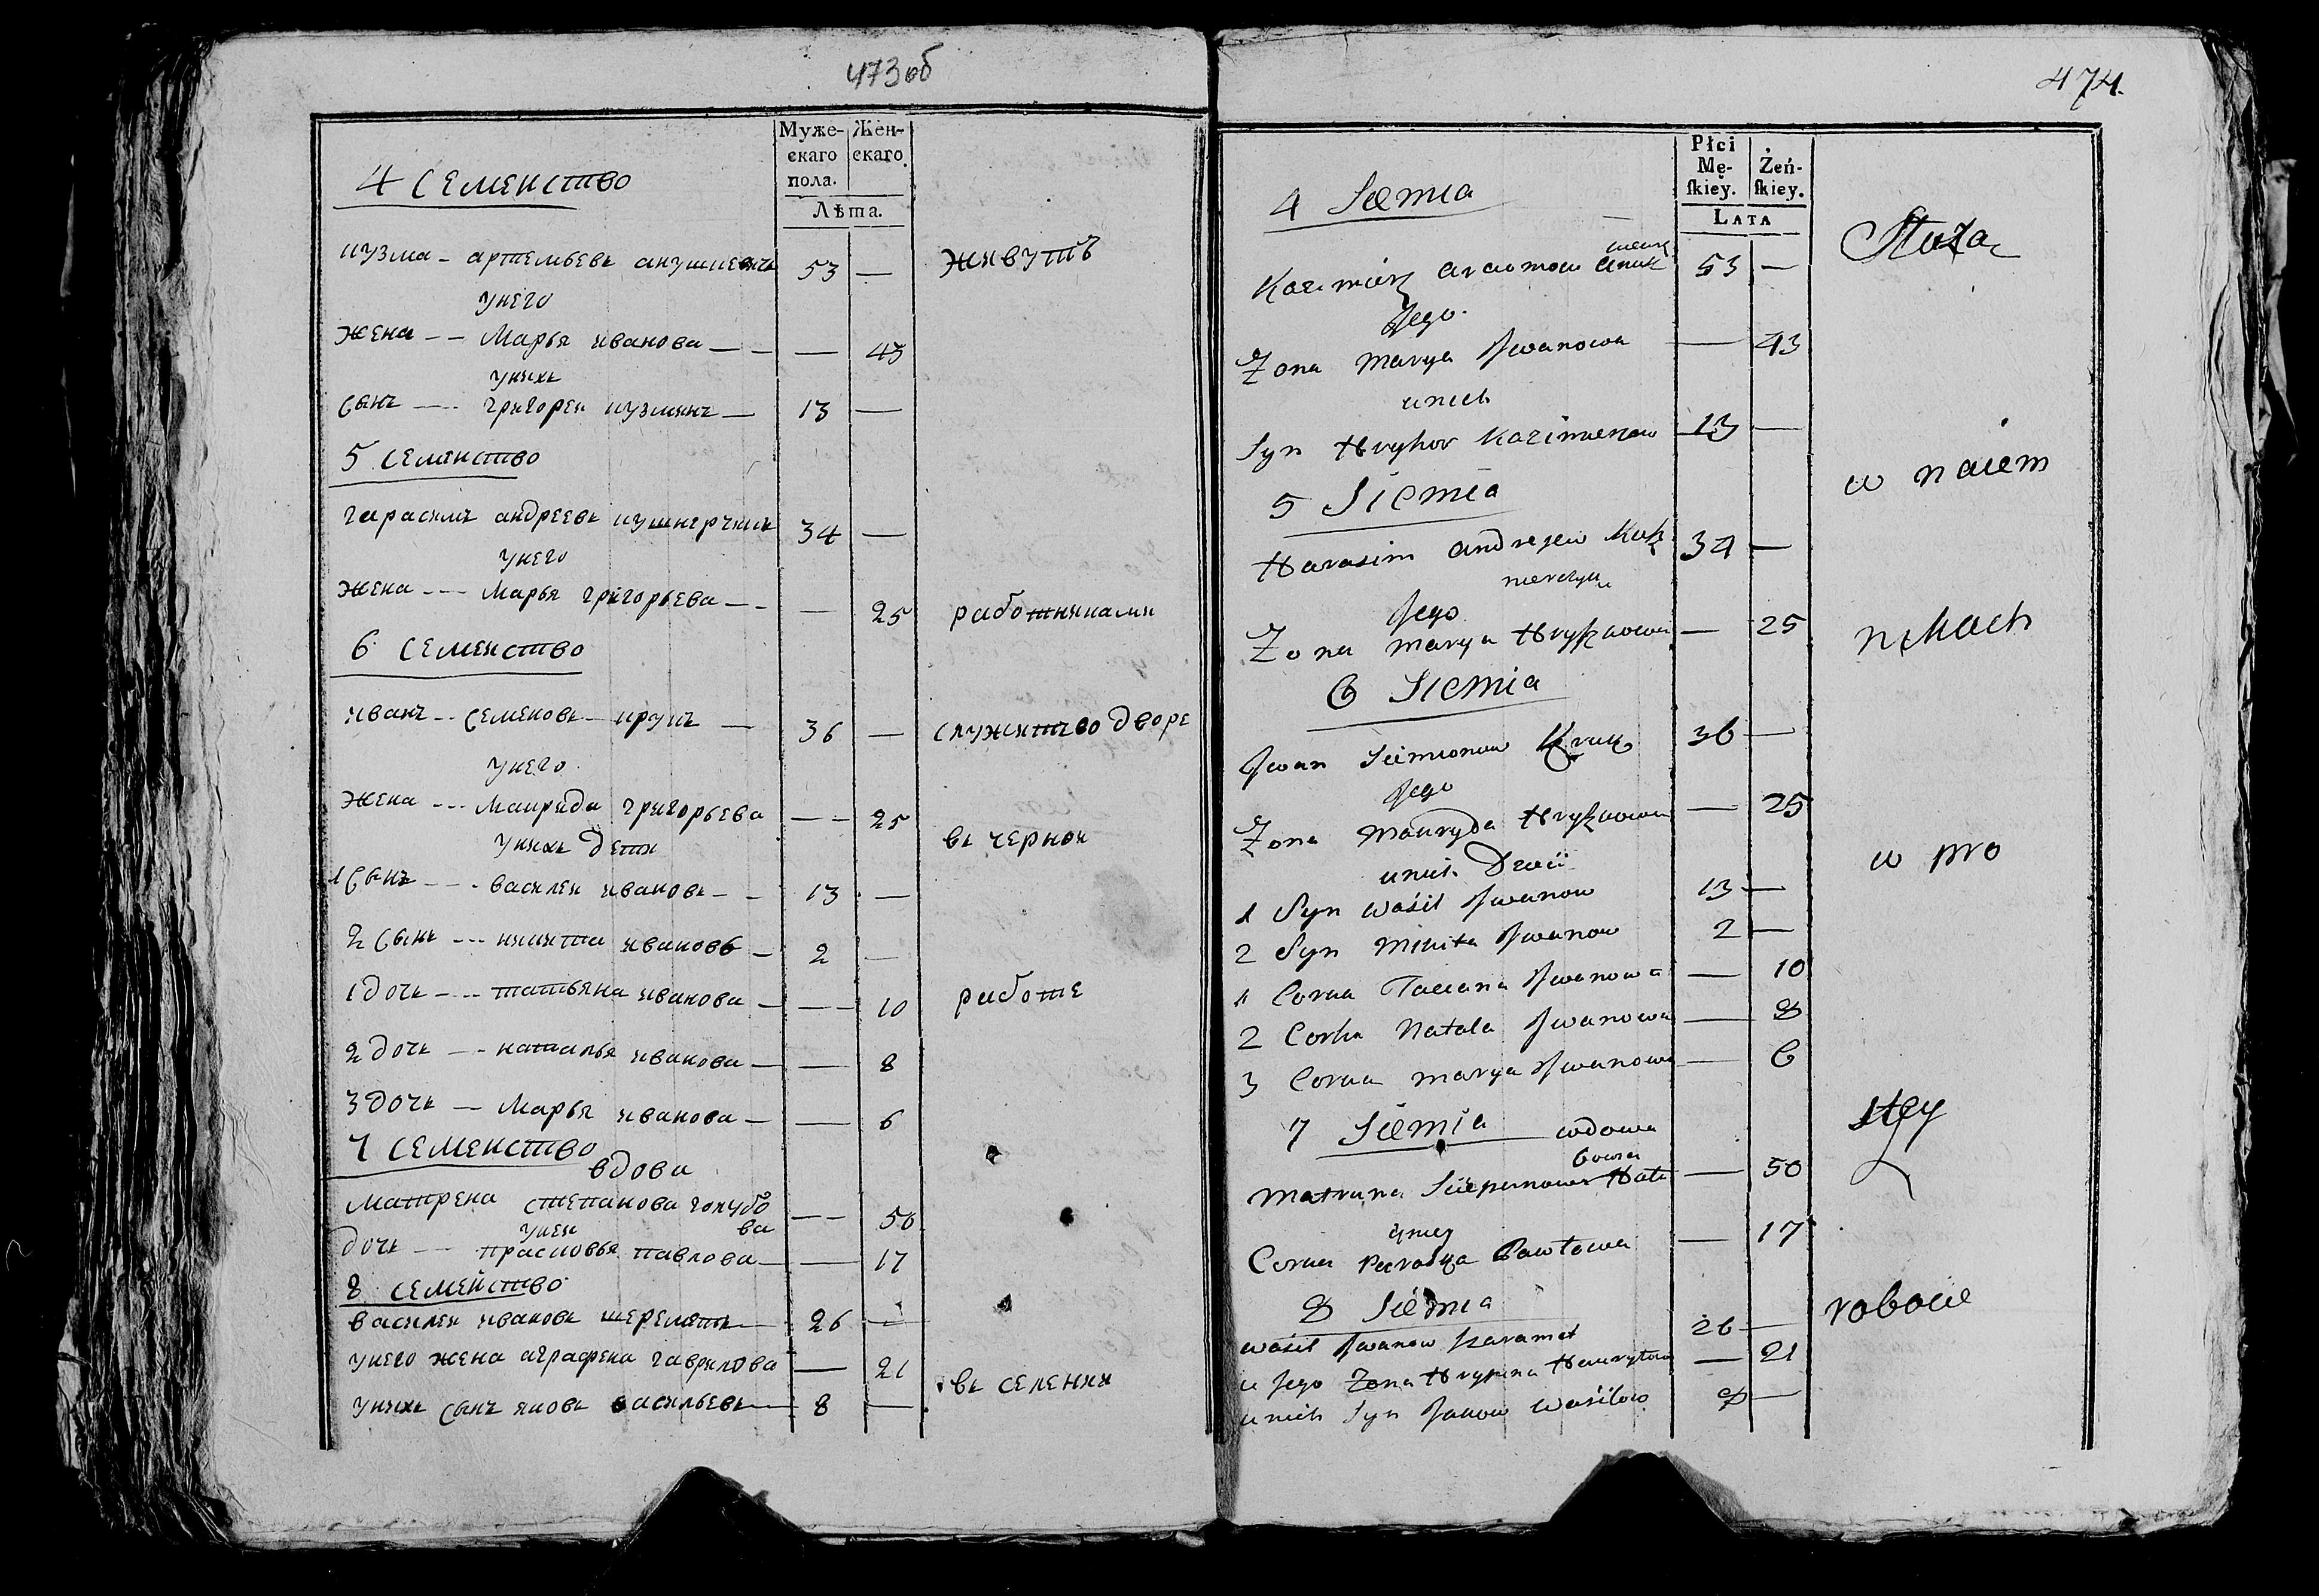 473 об
Муже- Жен-
скаго скаго.
пола.
Лѣта.
4 Семенство
кузма - артемьевъ 53 — живутъ
унего
жена -- Марья иванова -- — 43
унихъ
сынъ --- григореи кузминъ — 13 —
5 Семенство
гарасимъ андреевъ 34 —
унего
жена --- Марья григорьева -- — 25 работниками
6 Семенство
иванъ -- Семеновъ - крукъ — 36 — служитъ во дворе
унего
жена --- Маврида григорьева -- 25
унихъ дети въ чернои
1 сынъ --- василеи ивановъ -- 13 —
2 сынъ --- никита ивановъ — 2 —
1 дочь --- татьяна иванова — — 10 работе
2 дочь --- наталья иванова — — 8
3 дочь — Марья иванова — — 6
7 Семенство
вдова
Матрена степанова голубо — 50
унеи ва
дочь --- прасковья павлова — — 17
8 Семейство
василеи ивановъ шереметъ 26 —
унего жена аграфена гаврилова — 21
въ селении
унихъ сынъ яковъ васильевъ — 8 —
474.
Płci
Mę- Żeń-
skiey. skiey.
LATA
4 Siemia
Służą
Kazimierz 53 —
Jego
Zona Marya Jwanowa — 43
unich
Syn Hryhor Kazimierzow 13 —
w naiem
5 Siemia
Harasim Andrejew Kusz 34 —
nierczyk
Jego
Zona Marya Hryhorowa — 25
nikach
6 Siemia
Jwan Siemionow Kruk 36 —
Jego
Zona Mauryda Hryhorowa — 25
unich Dzieci
w pro
1 Syn Wasil Jwanow 13 —
2 Syn Mikita Jwanow 2 —
1 Corka Taciana Jwanowa — 10
2 Corka Natala Jwanowa — 8
3 Corka Marya Jwanowa — 6
7 Siemia wdowa
stey
bowa
Matruna Sciepanowa Hołu — 50
uniey
Corka Paraska Pawłowa — 17
8 Siemia
robocie
Wasil Jwanow Szaramet 26 —
u Jego Zona Hrypina Hauryłowa — 21
unich Syn Jakow Wasilow 8 —